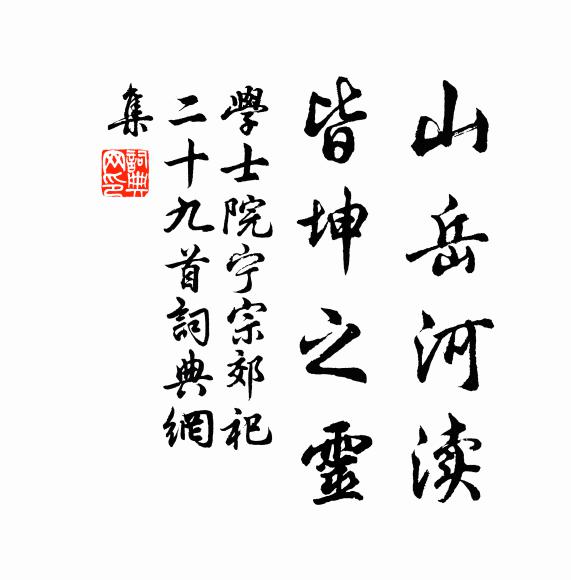 山岳河渎
皆坤之靈
學士院宁宗郊祀
二十九首詞典網
集
詞典
网印